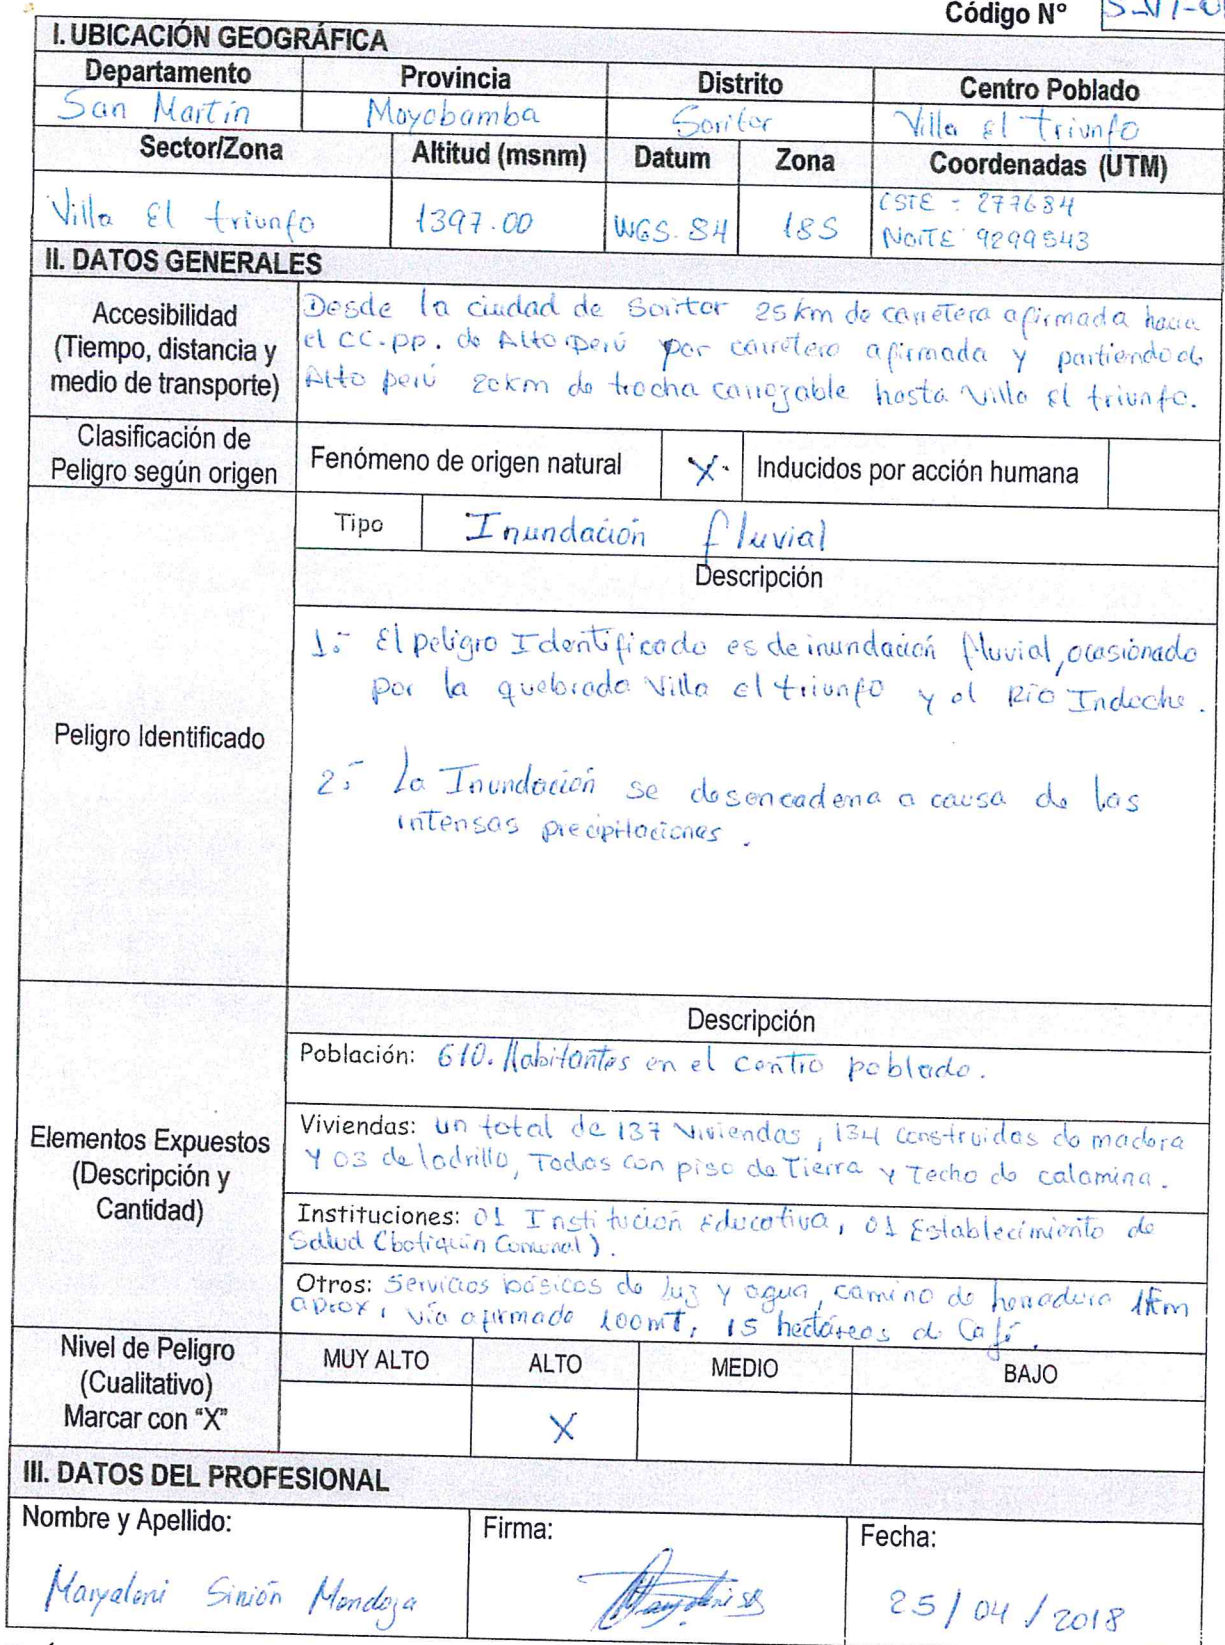 Código Nº
I. UBICACIÓN GEOGRÁFICA
Departamento Provincia Distrito Centro Poblado
San Martín Moyobamba Soritor Villa El triunfo
Sector/Zona Altitud (msnm) Datum Zona Coordenadas (UTM)
Villa El triunfo 1397.00 WGS.84 18S
ESTE: 277684
NORTE: 9299543
II. DATOS GENERALES
Accesibilidad
(Tiempo, distancia y
medio de transporte)
Desde la ciudad de Soritor 25 km de carretera afirmada hacia
el CC.pp. de Alto Perú por carretera afirmada y partiendo de
Alto perú 20km de trocha carrozable hasta Villa El triunfo.
Clasificación de
Peligro según origen
Fenómeno de origen natural X Inducidos por acción humana
Peligro Identificado
Tipo Inundación fluvial
Descripción
1.- El peligro Identificado es de inundación fluvial, ocasionado
por la quebrada Villa el triunfo y el Río Indoche.
2.- La Inundación se desencadena a causa de las
intensas precipitaciones.
Elementos Expuestos
(Descripción y
Cantidad)
Descripción
Población: 610. Habitantes en el centro poblado.
Viviendas: un total de 137 viviendas, 134 construidas de madera
y 03 de ladrillo, Todas con piso de Tierra y Techo de calamina.
Instituciones: 01 Institución Educativa, 01 Establecimiento de
Salud (botiquín Comunal).
Otros: Servicios básicos de luz y agua, camino de herradura 1Km
aprox, vía afirmada 100mt, 15 hectáreas de Café.
Nivel de Peligro
(Cualitativo)
Marcar con "X"
MUY ALTO ALTO MEDIO BAJO
X
III. DATOS DEL PROFESIONAL
Nombre y Apellido: Firma: Fecha:
Sinión Mendoza
25/04/2018